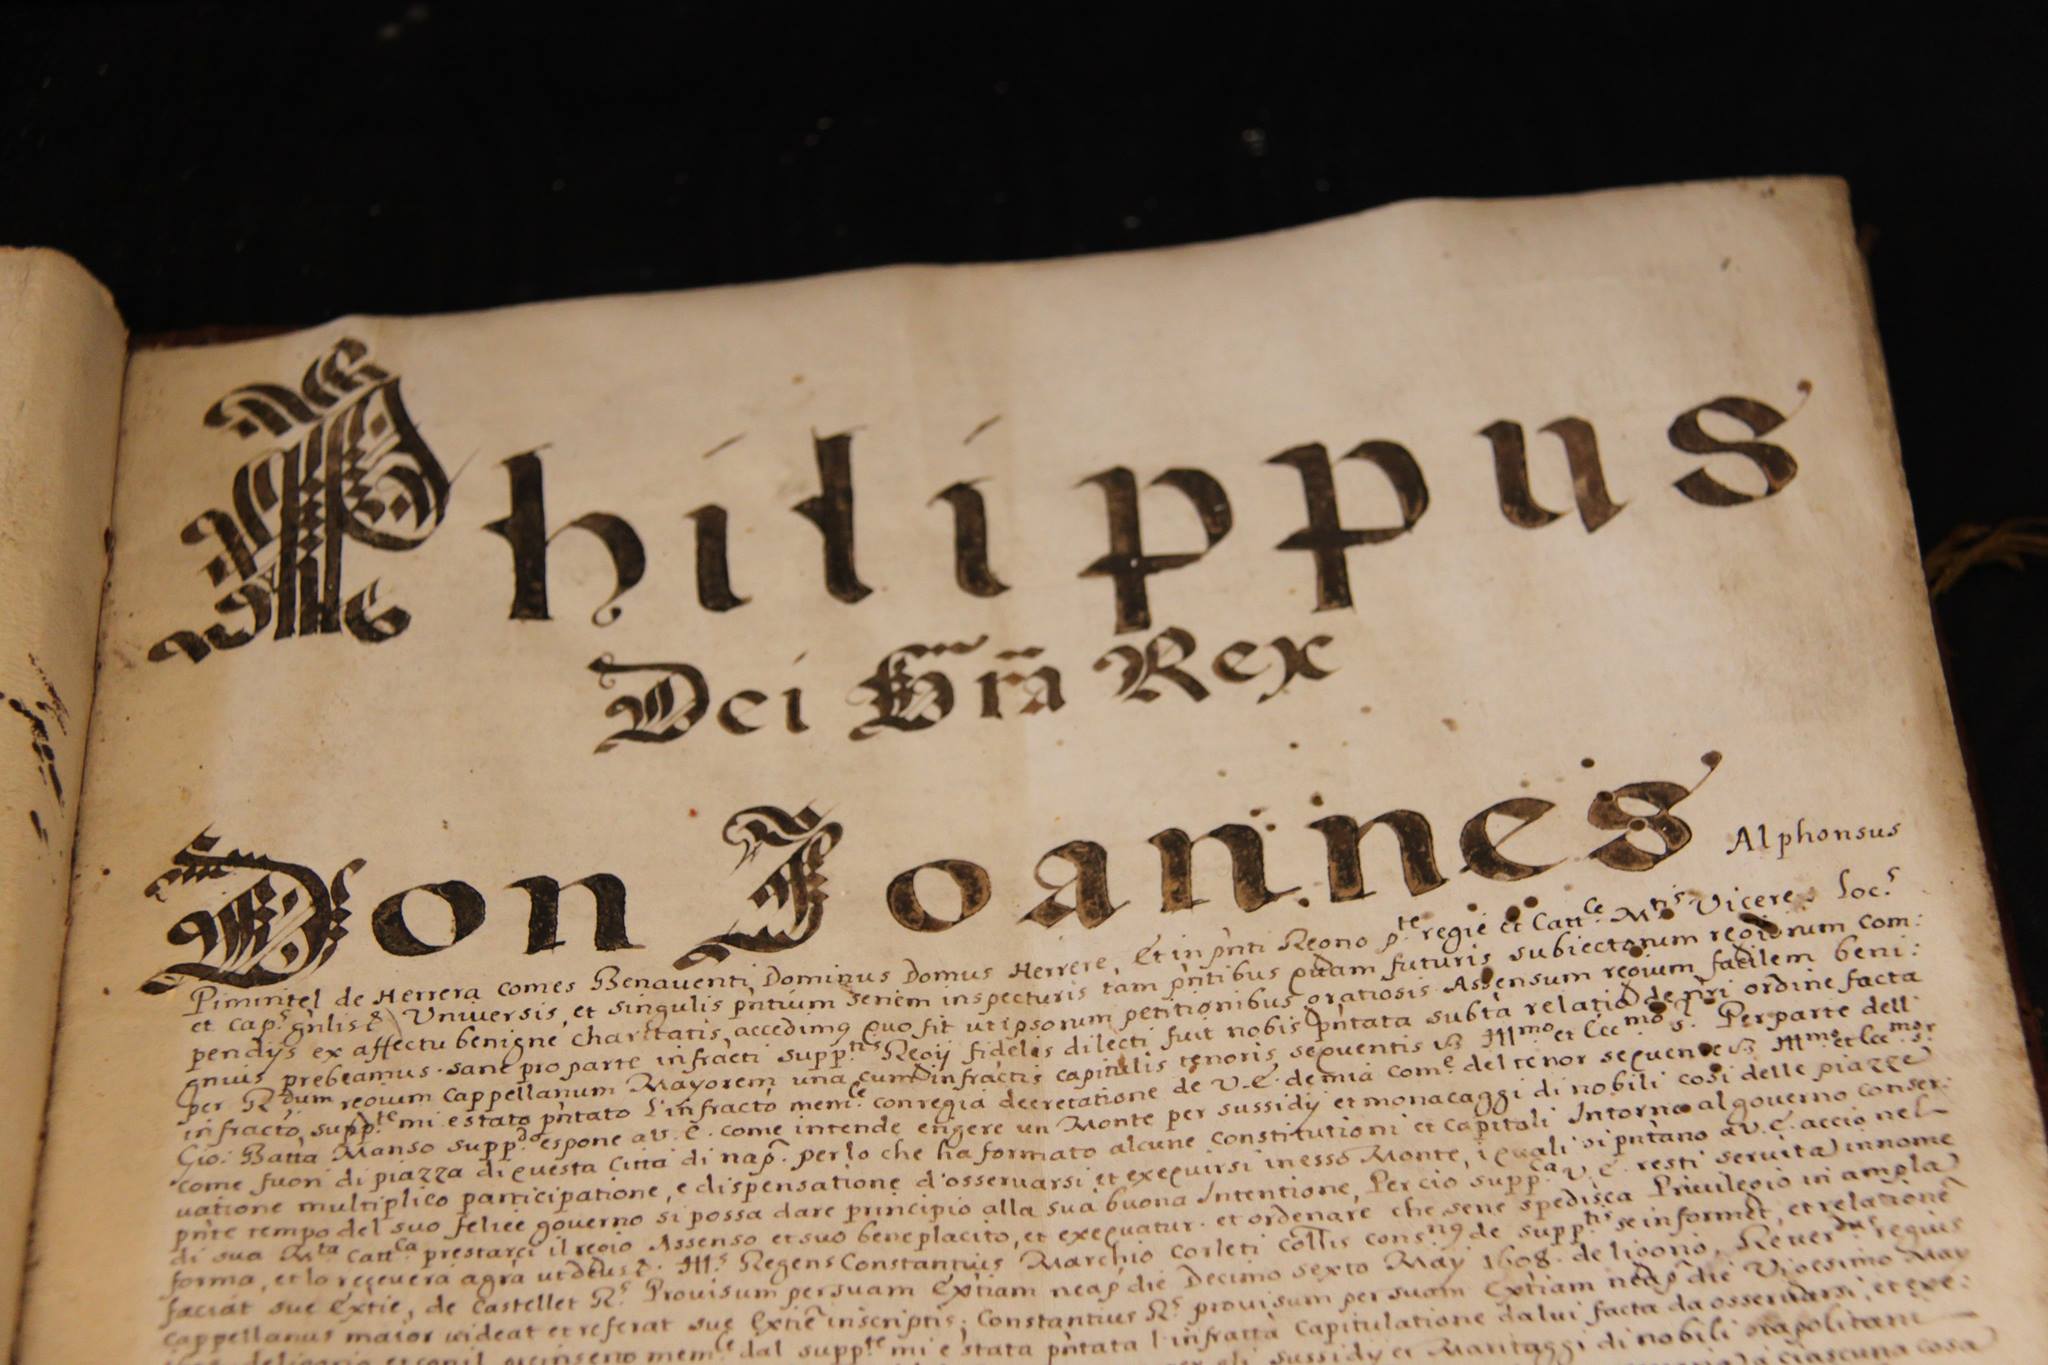 Philippus
Dei Gr̃a Rex
Don Joannes Alphonsus
Pimintel de Herrera comes Benaventi, Dominus Domus Herrere, Et in pñti Regno p.te regie et Catt.ce M.tis Vicere, Loc.s
et cap.s gñlis Universis, et singulis pñtium seriem inspecturis tam pñtibus quam futuris subiectorum regiorum com:
pendys ex affectu benigne charitatis accedimus quo fit ut ipsorum petitionibus gratiosis Assensum regium facilem beni:
gnius prebeamus. sane pro parte infracti supp.tis Regij fidelis dilecti fuit nobis pñtata subta relatio de nr̃i ordine facta
per R.dum regium Cappellanum Mayorem una cum infractis capitulis tenoris sequentis Ill.mo et Ecc.mo S.r Per parte dell
infracto supp.te mi è stato pñtato l'infracto mem.le con regia decretatione de V. E. de mia com.e del tenor sequente Ill.mo et Ecc.mo S.r
Gio: Batta Manso supp.do espone a V. E. come intende erigere un Monte per sussidy et monacaggi di nobili cosi delle piazze
come fuori di piazza di questa Città di nap. per lo che ha formato alcune constitutioni et Capitoli Intorno al governo conser:
vatione multiplico participatione, e dispensatione d'osservarsi et exequirsi in esso Monte, i quali si pñtano a V. E. acciò nel
pñte tempo del suo felice governo si possa dare principio alla sua buona Intentione, Per ciò supp.ca V. E. resti servita in nome
di sua M.ta Catt.ca prestarci il regio Assenso et suo beneplacito, et exequatur. et ordenare che sene spedisca Privilegio in ampla
forma, et lo receverà a gr̃a ut deus. Ill.s Regens Constantius Marchio Corleti Coll.is cons.rius de supp.tis se informet, et relatione
faciat sue Extie, de Castellet R.s Provisum per suam Extiam neap. die Decimo sexto May 1608. de ligorio, Rever.dus regius
cappellanus maior videat et referat sue Extie inscriptis; Constantius R.s provisum per suam Extiam neap. die Vigesimo May
mem.le dal supp.te mi è stata pñtata l'infratta Capitulatione da lui facta da osservarsi, et exe:
sussidij et Maritaggi di nobili napolitani
ciascuna cosa